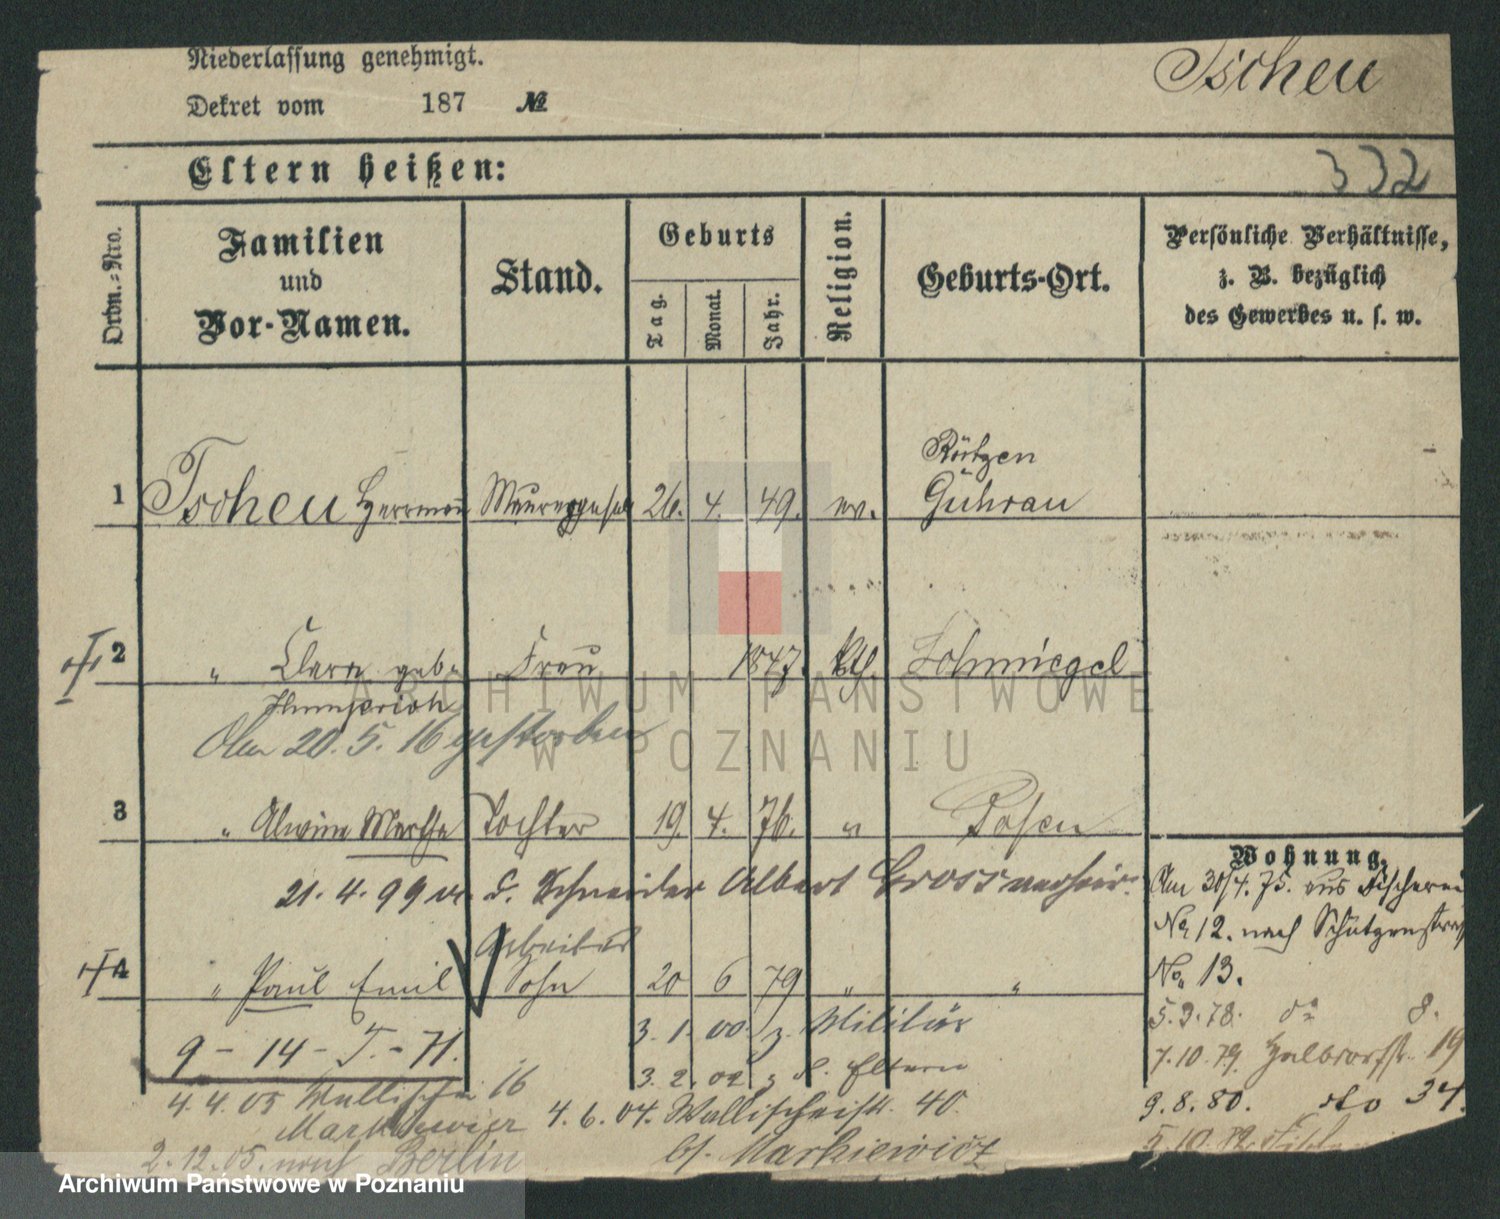 Niederlassung genehmigt.
Dekret vom 187 №
Tscheu
332
Eltern heißen:
Ordn.-Nro.
Familien
und
Vor-Namen.
Stand.
Geburts
Tag.
Monat.
Jahr.
Religion.
Geburts-Ort.
Persönliche Verhältnisse,
z. B. bezüglich
des Gewerbes u. s. w.
Guhrau
1 Tscheu Herrmann Maurergesell 26. 4. 49. ev.
2 " Clara geb. Frau 1847. kth. Schmiegel
Am 20. 5. 16 gestorben
3 " Alwine Martha Tochter 19. 4. 76. " Posen
21. 4. 99 m. d. Schneider Albert Gross verheir.
Wohnung.
Am 30/4. 75. aus Fischerei
No 12. nach Schützenstraße
No. 13.
Arbeiter
4 " Paul Emil Sohn 20 6 79 " "
5. 9. 78. do 8.
3. 1. 00. z. Militär
9 - 14 - T. - H.
7. 10. 79. Halbdorfstr. 19
3. 2. 02 z. d. Eltern
4. 4. 05 Wallischei 16
4. 6. 04. Wallischeistr. 40.
9. 8. 80. dto 34.
bf. Markiewicz
2. 12. 05. nach Berlin
5. 10. 82.
ARCHIWUM PAŃSTWOWE
W POZNANIU
Archiwum Państwowe w Poznaniu